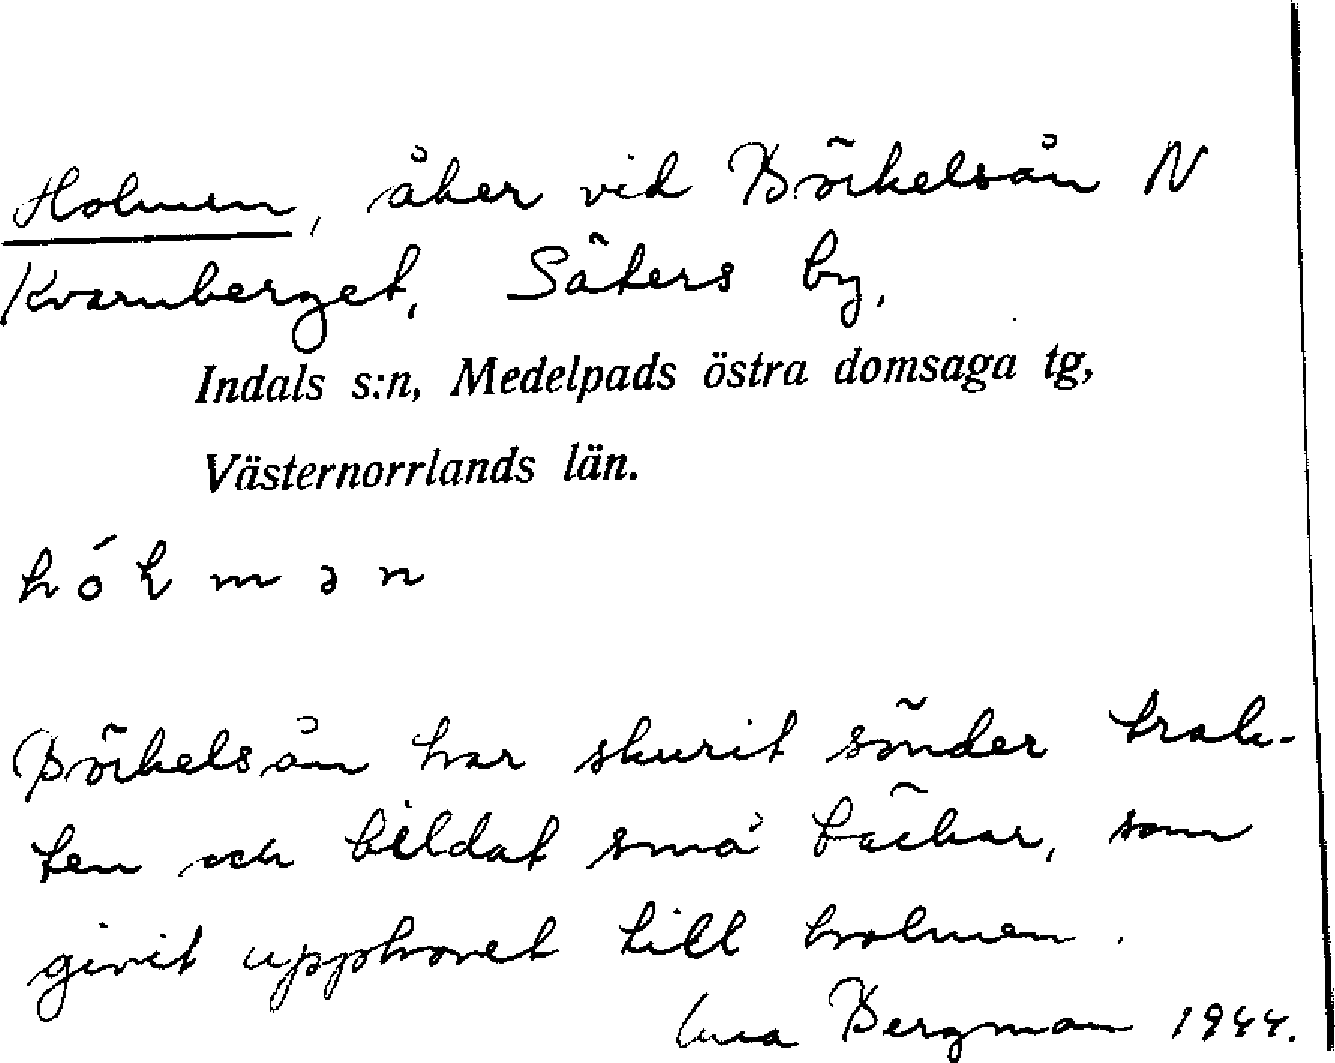 Holmen, åker vid Börkelsån N
Kvarnberget, Säters by,
Indals s:n, Medelpads östra domsaga tg,
Västernorrlands län.
Börkelsån har skurit sönder trak-
ten och bildat små bäckar, som
givit upphovet till holmen.
Bergman 1944.